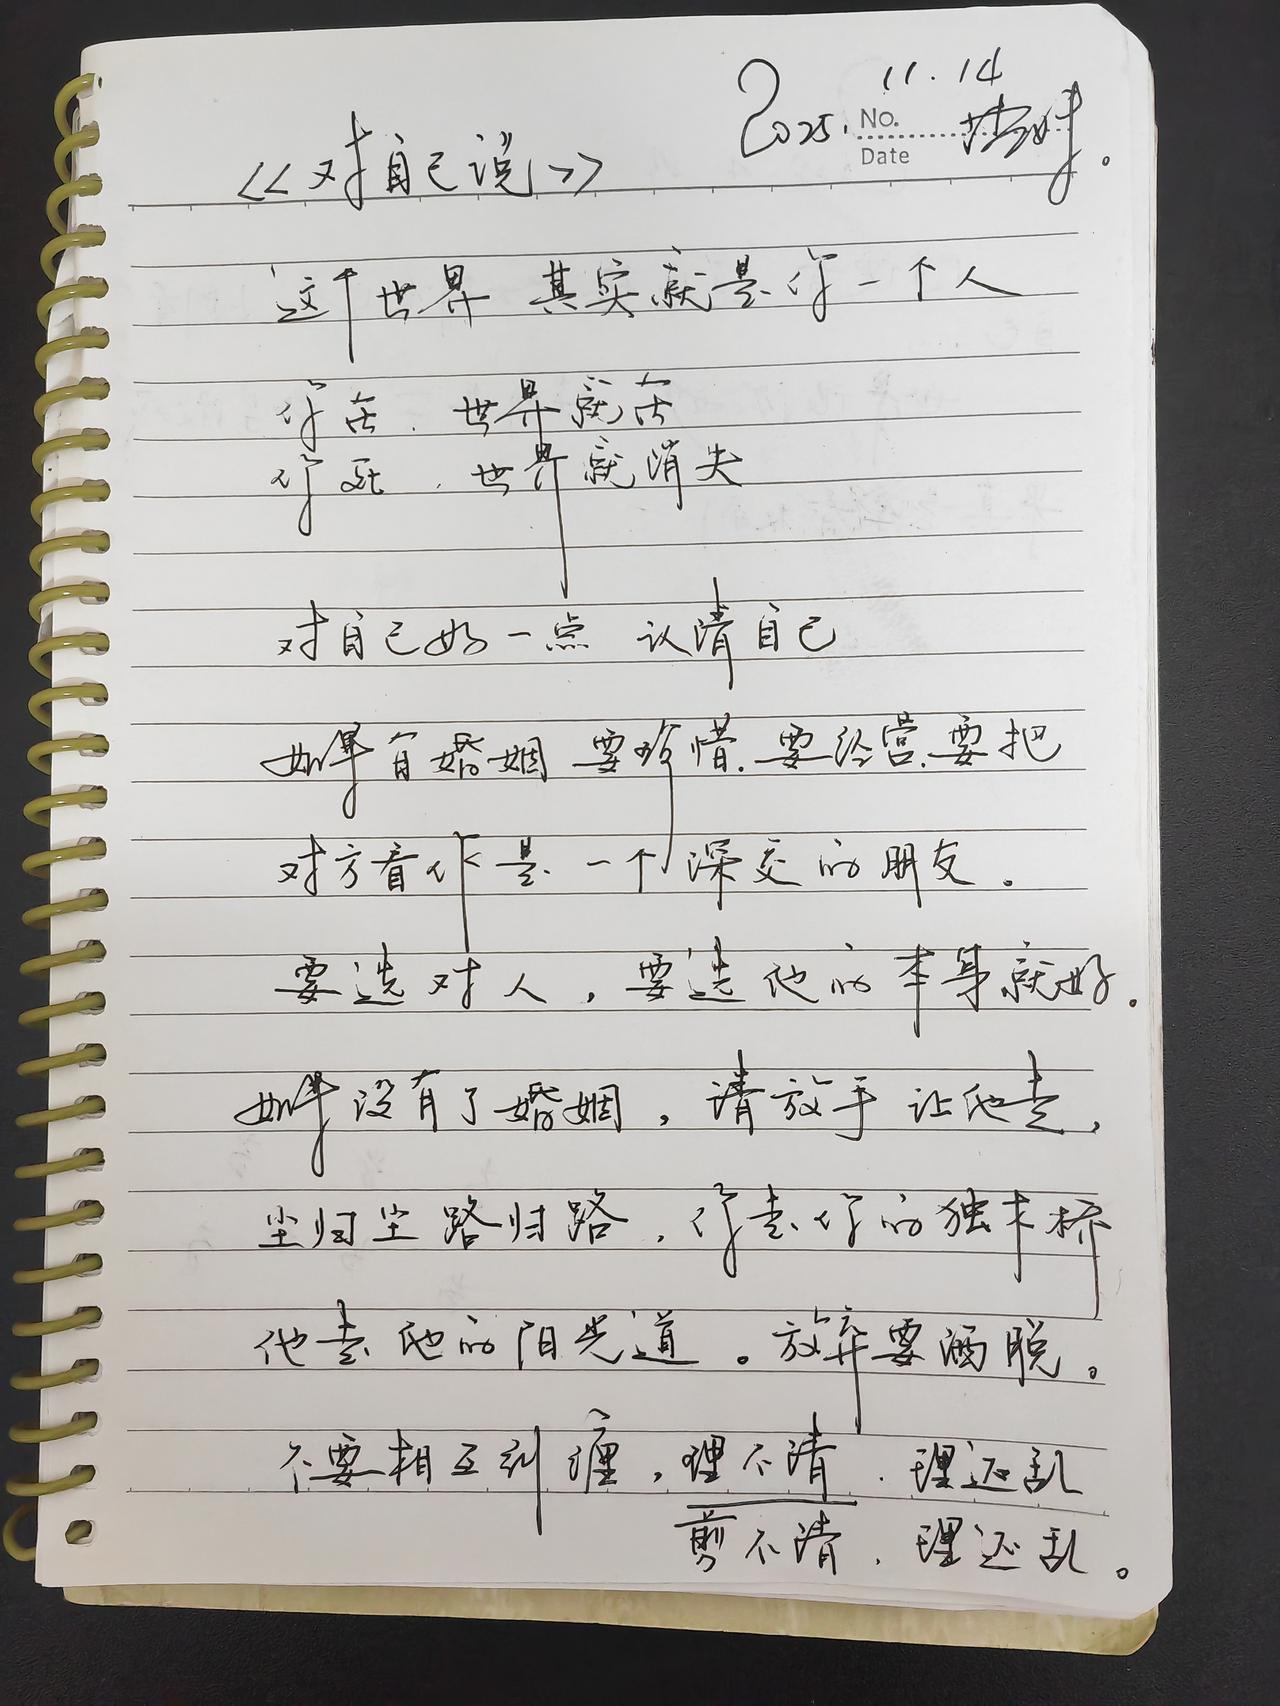 11.14
2025. No.
Date
<<对自己说>>
这个世界 其实就是你一个人
你在.世界就在
你死.世界就消失
对自己好一点 认清自己
如果有婚姻 要珍惜.要经营.要把
对方看作是一个深交的朋友。
要选对人,要选他的本身就好.
如果没有了婚姻,请放手让他走,
尘归尘路归路,你走你的独木桥
他走他的阳光道。放弃要洒脱。
不要相互纠缠,理不清.理还乱
剪不清.理还乱。